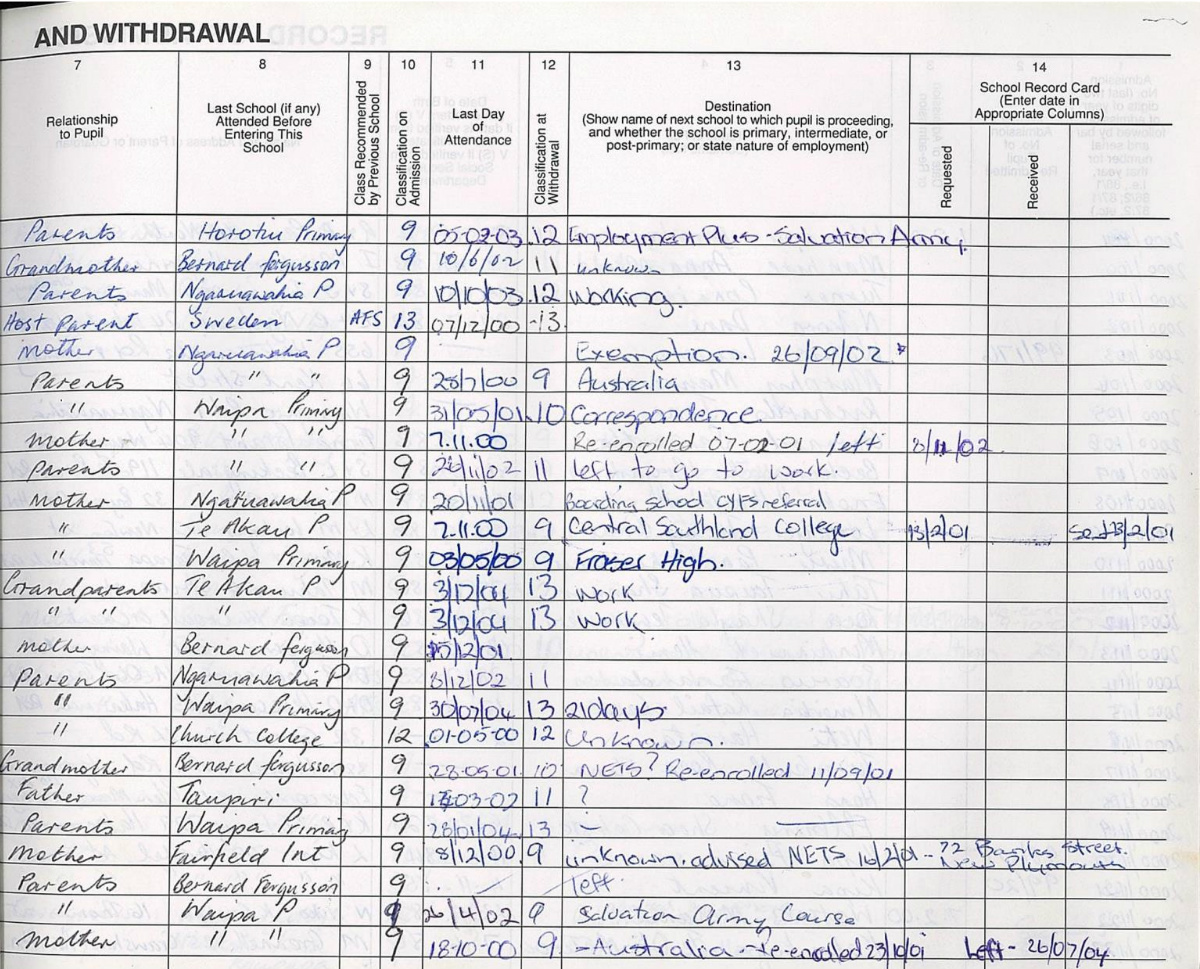 AND WITHDRAWAL
7 8 9 10 11 12 13 14
Relationship to Pupil
Last School (if any) Attended Before Entering This School
Class Recommended by Previous School
Classification on Admission
Last Day Attendance
Classification at Withdrawal
Destination
(Show name of next school to which pupil is proceeding, and whether the school is primary, intermediate, or post-primary; or state nature of employment)
School Record Card
(Enter date in Appropriate Columns)
Requested
Received
Parents Horotiu Primary 9 05-02-03 12 Employment Plus - Salvation Army.
Grandmother Bernard fergusson 9 10/6/02 11 unknown
Parents Ngaruawahia P 9 10/10/03 12 Working.
Host Parent Sweden AFS 13 07/12/00 -13
mother Ngaruawahia P 9 Exemption. 26/09/02 *
Parents " " 9 28/7/00 9 Australia
" Waipa Primary 9 31/05/01 10 Correspondence
mother " " 9 7.11.00 Re-enrolled 07-02-01 left 8/11/02
Parents " " 9 20/11/02 11 left to go to work.
Mother Ngaruawahia P 9 20/11/01 Boarding school CYFS referral
" Te Akau P 9 7.11.00 9 Central Southland College 13/2/01 Sent 13/2/01
" Waipa Primary 9 03/05/00 9 Fraser High.
Grandparents Te Akau P 9 3/12/04 13 Work
" " " 9 3/12/04 13 Work
mother Bernard fergusson 9 /12/01
Parents Ngaruawahia P 9 8/12/02 11
" Waipa Primary 9 30/07/04 13 21days.
" Church College 12 01-05-00 12 Unknown.
Grandmother Bernard fergusson 9 28-05-01 10 NETS? Re-enrolled 11/09/01
Father Taupiri 9 03-02 11 ?
Parents Waipa Primary 9 28/01/04 13 -
Mother Fairfield Int 9 8/12/00 9 unknown. advised NETS 16/2/01 - 72 Street.
New Plymouth
Parents Bernard Fergusson 9 left.
" Waipa P 9 26/4/02 9 Salvation Army Course
Mother " " 9 18-10-00 9 - Australia - re-enrolled 23/10/01 Left - 26/07/04